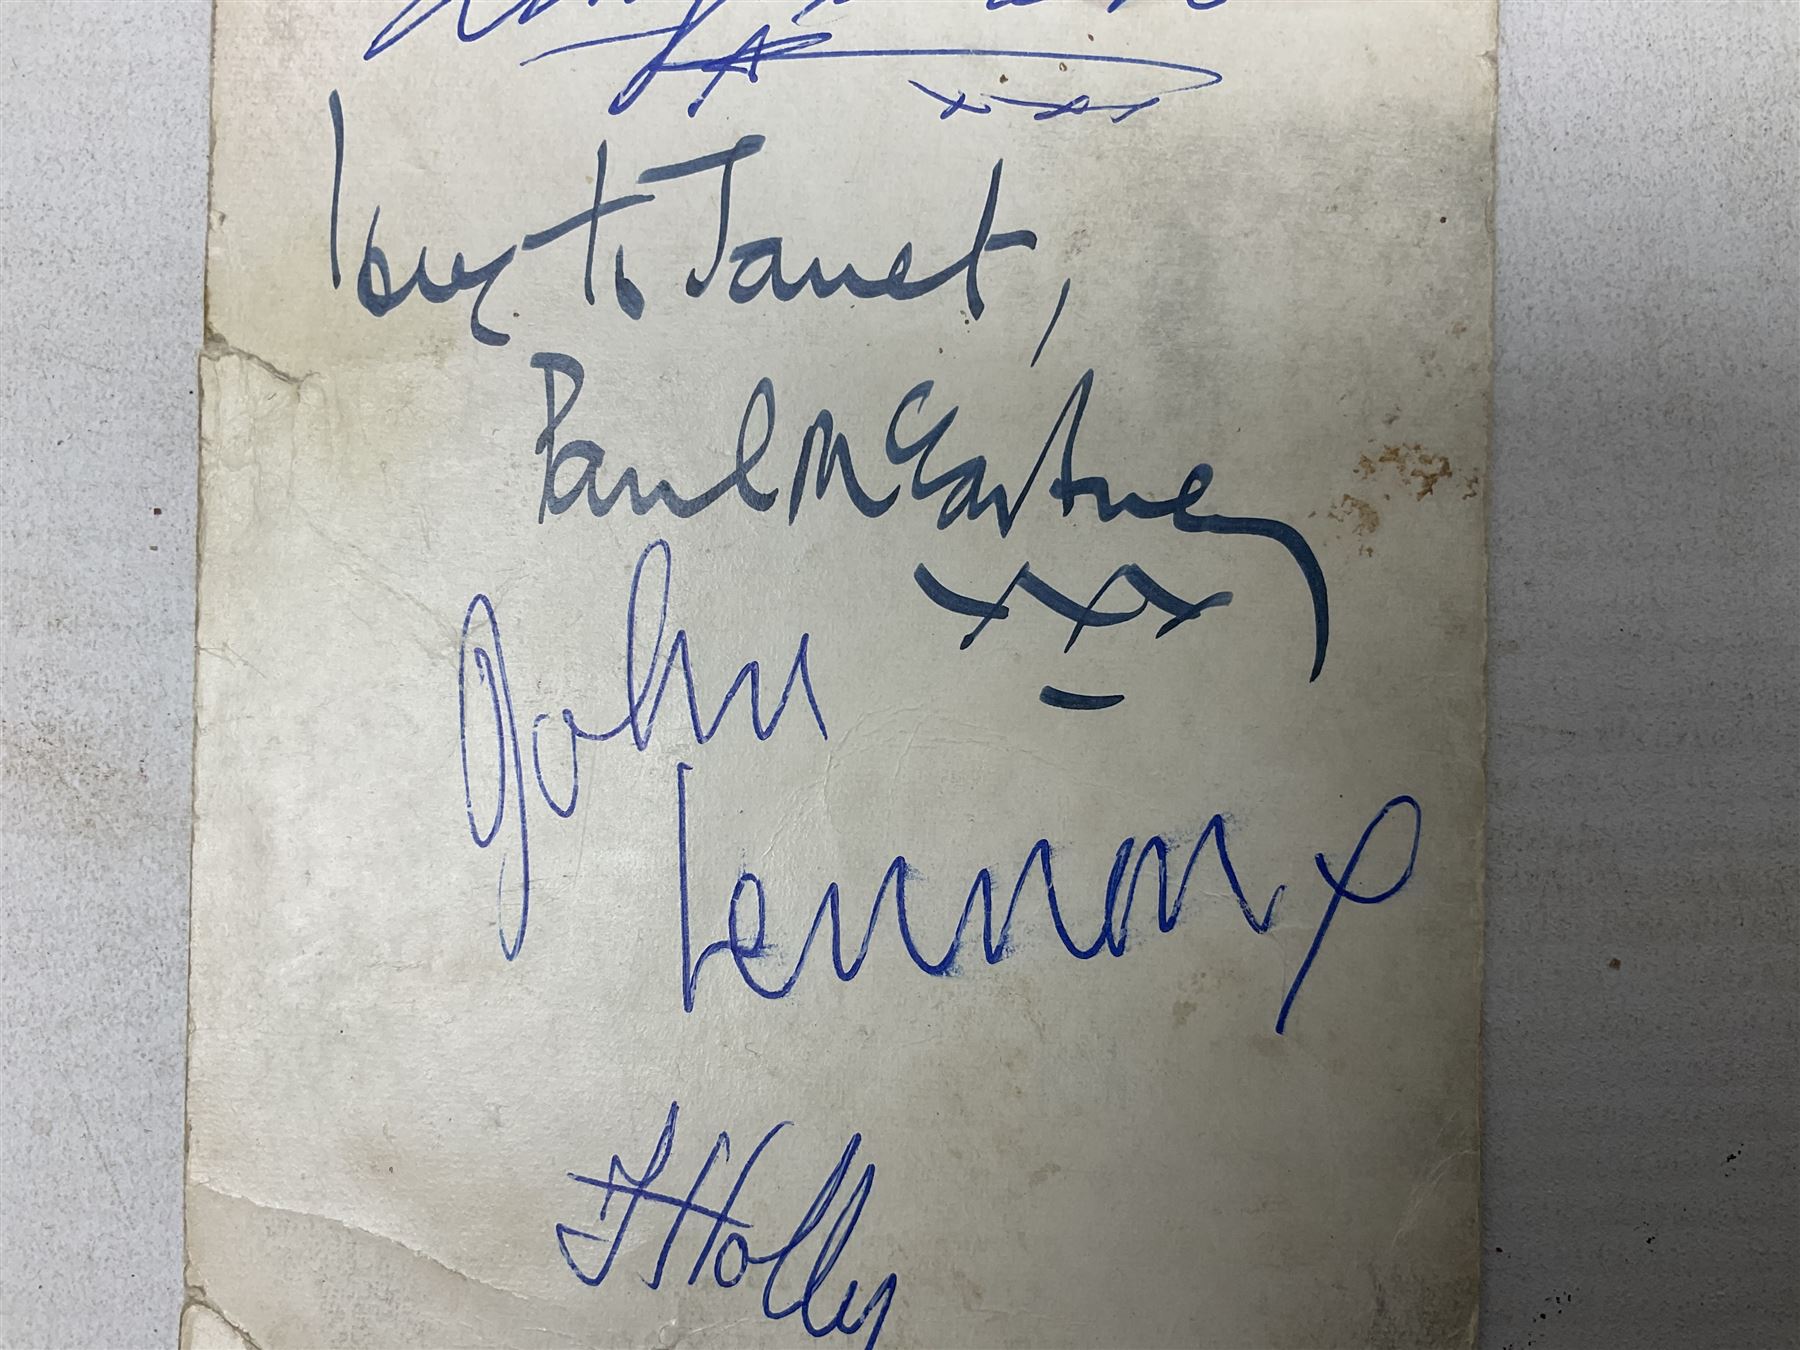 xxx
love to Janet,
Paul McCartney
xxx
John
Lennon x
J Holly